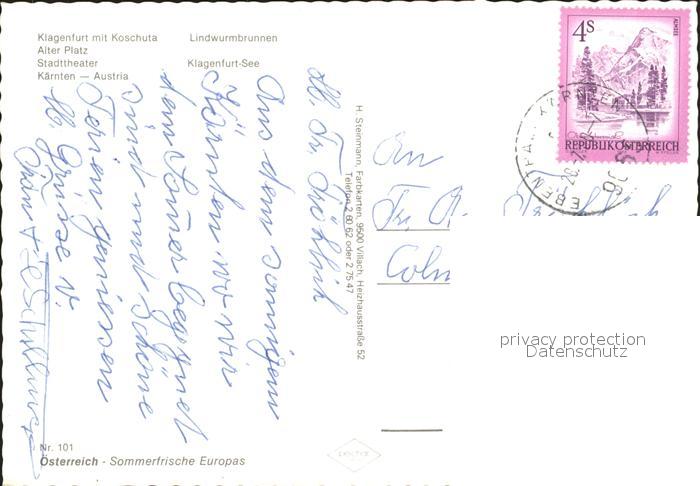 Klagenfurt mit Koschuta Lindwurmbrunnen
Alter Platz
Stadttheater Klagenfurt-See
Kärnten — Austria
Lb. Fr. Fröhlich
Aus dem sonnigen
Kärnten, wo wir
dem Sommer begegnet
sind und schöne
Ferien geniessen
lb. Grüsse v.
H. Steinmann, Farbkarten, 9500 Villach, Heizhausstraße 52
Telefon 2 60 62 oder 2 75 47
4s
ALMSEE
REPUBLIK ÖSTERREICH
An
Fr. A. Fröhlich
Cöln
privacy protection
Datenschutz
Nr. 101
Österreich - Sommerfrische Europas